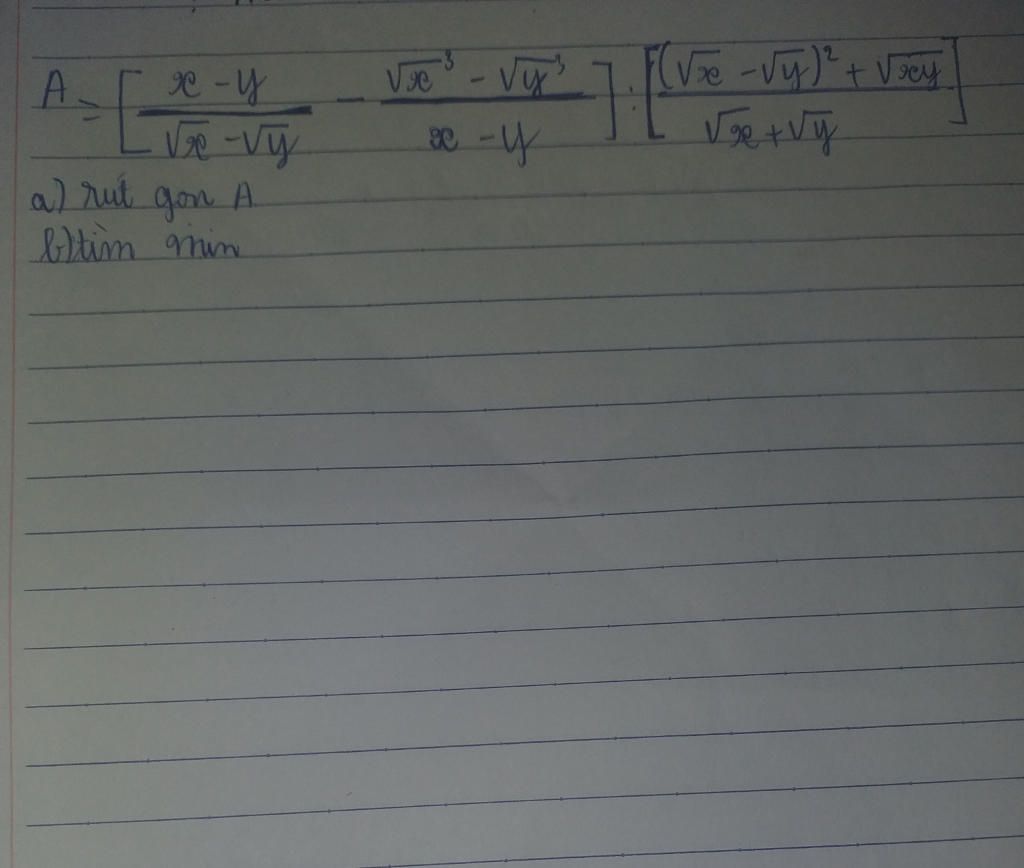 A = [ (x - y)/(√x - √y) - (√x³ - √y³)/(x - y) ] : [ ((√x - √y)² + √xy)/(√x + √y) ]
a) rút gọn A
b) tìm min